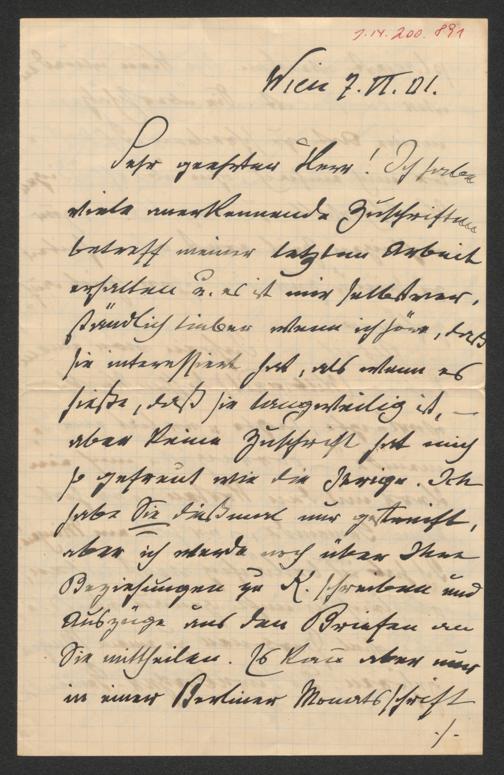 I.N. 200.891
Wien 7. VI. 01.
Sehr geehrter Herr! Ich habe
viele anerkennende Zuschriften
betreff meiner letzten Arbeit
erhalten u. es ist mir selbstver-
ständlich lieber wenn ich höre, daß
sie interessiert hat, als wenn es
hieße, daß sie langweilig ist, —
aber keine Zuschrift hat mich
so gefreut wie die Ihrige. Ich
habe Sie dießmal nur gestreift,
aber ich werde noch über Ihre
Beziehungen zu K. schreiben und
Auszüge aus den Briefen an
Sie mittheilen. Es kann aber nur
in einer Berliner Monatsschrift
./.